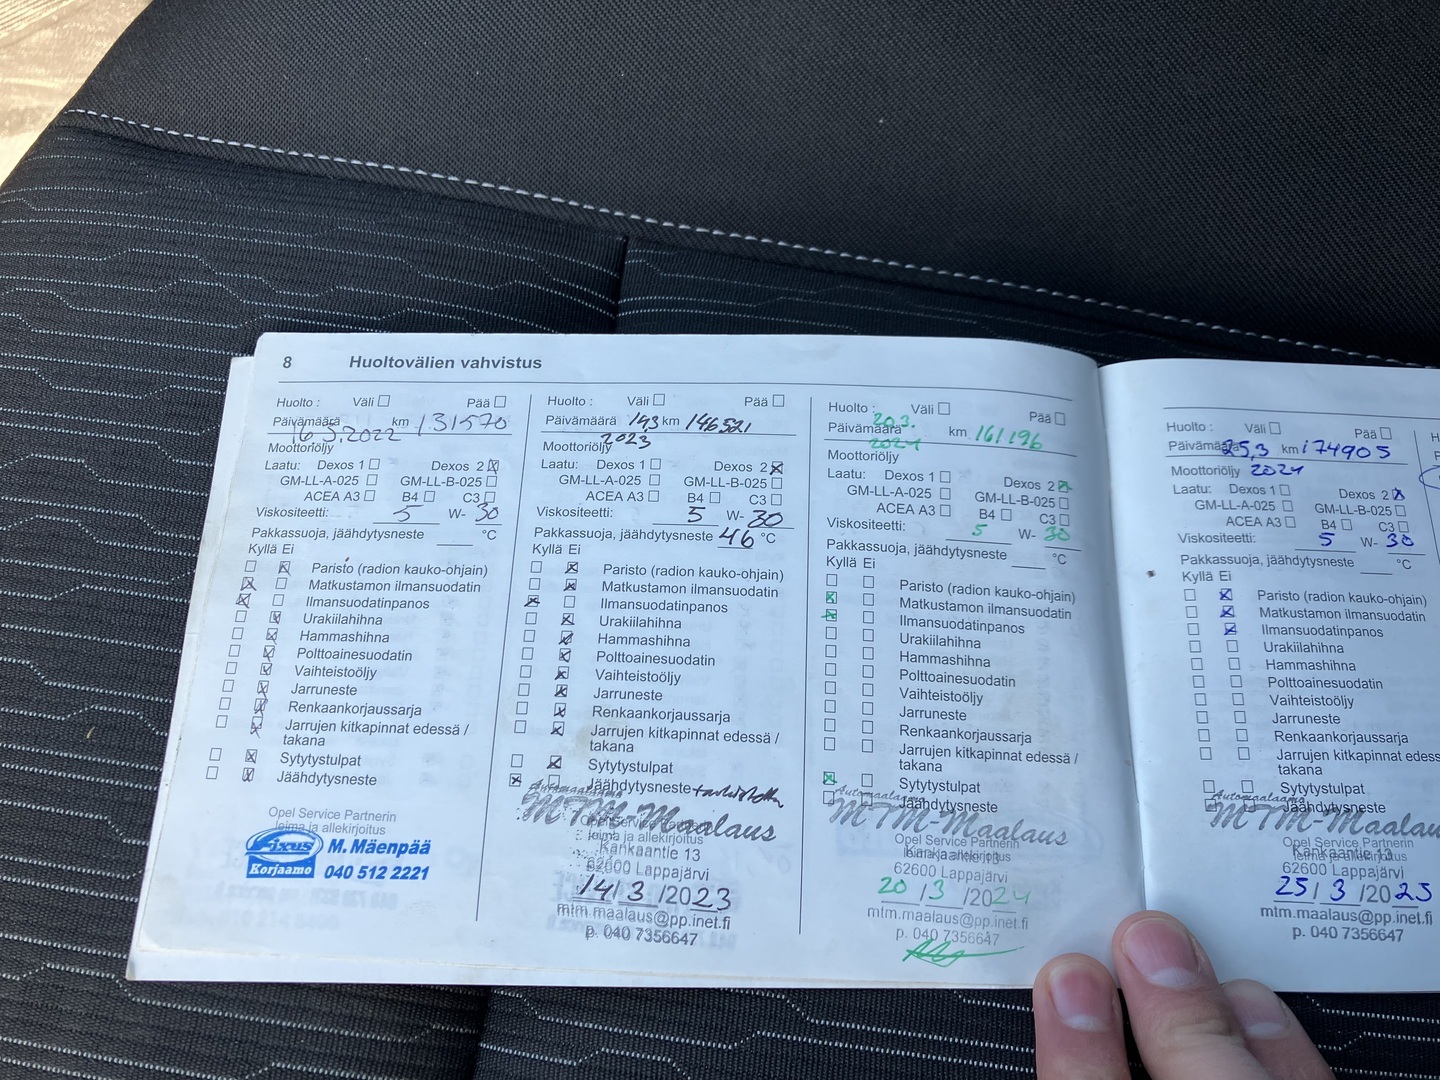 8 Huoltovälien vahvistus
Huolto : Väli Pää
Päivämäärä 16 5.2022 km 131570
Moottoriöljy
Laatu: Dexos 1 Dexos 2
GM-LL-A-025 GM-LL-B-025
ACEA A3 B4 C3
Viskositeetti: 5 W- 30
Pakkassuoja, jäähdytysneste °C
Kyllä Ei
Paristo (radion kauko-ohjain)
Matkustamon ilmansuodatin
Ilmansuodatinpanos
Urakiilahihna
Hammashihna
Polttoainesuodatin
Vaihteistoöljy
Jarruneste
Renkaankorjaussarja
Jarrujen kitkapinnat edessä /
takana
Sytytystulpat
Jäähdytysneste
Opel Service Partnerin
leima ja allekirjoitus
Fixus M. Mäenpää
Korjaamo 040 512 2221
Huolto : Väli Pää
Päivämäärä 14,3 km 146521
2023
Moottoriöljy
Laatu: Dexos 1 Dexos 2
GM-LL-A-025 GM-LL-B-025
ACEA A3 B4 C3
Viskositeetti: 5 W- 30
Pakkassuoja, jäähdytysneste 46 °C
Kyllä Ei
Paristo (radion kauko-ohjain)
Matkustamon ilmansuodatin
Ilmansuodatinpanos
Urakiilahihna
Hammashihna
Polttoainesuodatin
Vaihteistoöljy
Jarruneste
Renkaankorjaussarja
Jarrujen kitkapinnat edessä /
takana
Sytytystulpat
Jäähdytysneste
Automaalaamo
MTM-Maalaus
leima ja allekirjoitus
Kankaantie 13
62600 Lappajärvi
14/3/2023
mtm.maalaus@pp.inet.fi
p. 040 7356647
Huolto : Väli Pää
20.3.
Päivämäärä km 161196
2024
Moottoriöljy
Laatu: Dexos 1 Dexos 2
GM-LL-A-025 GM-LL-B-025
ACEA A3 B4 C3
Viskositeetti: 5 W- 30
Pakkassuoja, jäähdytysneste °C
Kyllä Ei
Paristo (radion kauko-ohjain)
Matkustamon ilmansuodatin
Ilmansuodatinpanos
Urakiilahihna
Hammashihna
Polttoainesuodatin
Vaihteistoöljy
Jarruneste
Renkaankorjaussarja
Jarrujen kitkapinnat edessä /
takana
Sytytystulpat
Jäähdytysneste
Automaalaamo
MTM-Maalaus
Opel Service Partnerin
leima ja allekirjoitus
Kankaantie 13
62600 Lappajärvi
20/3/2024
mtm.maalaus@pp.inet.fi
p. 040 7356647
Huolto : Väli Pää
Päivämäärä 25,3 km 174905
Moottoriöljy
Laatu: Dexos 1 Dexos 2
GM-LL-A-025 GM-LL-B-025
ACEA A3 B4 C3
Viskositeetti: 5 W- 30
Pakkassuoja, jäähdytysneste °C
Kyllä Ei
Paristo (radion kauko-ohjain)
Matkustamon ilmansuodatin
Ilmansuodatinpanos
Urakiilahihna
Hammashihna
Polttoainesuodatin
Vaihteistoöljy
Jarruneste
Renkaankorjaussarja
Jarrujen kitkapinnat edessä /
takana
Sytytystulpat
Jäähdytysneste
Automaalaamo
MTM-Maalaus
Opel Service Partnerin
leima ja allekirjoitus
Kankaantie 13
62600 Lappajärvi
25/3/2025
mtm.maalaus@pp.inet.fi
p. 040 7356647